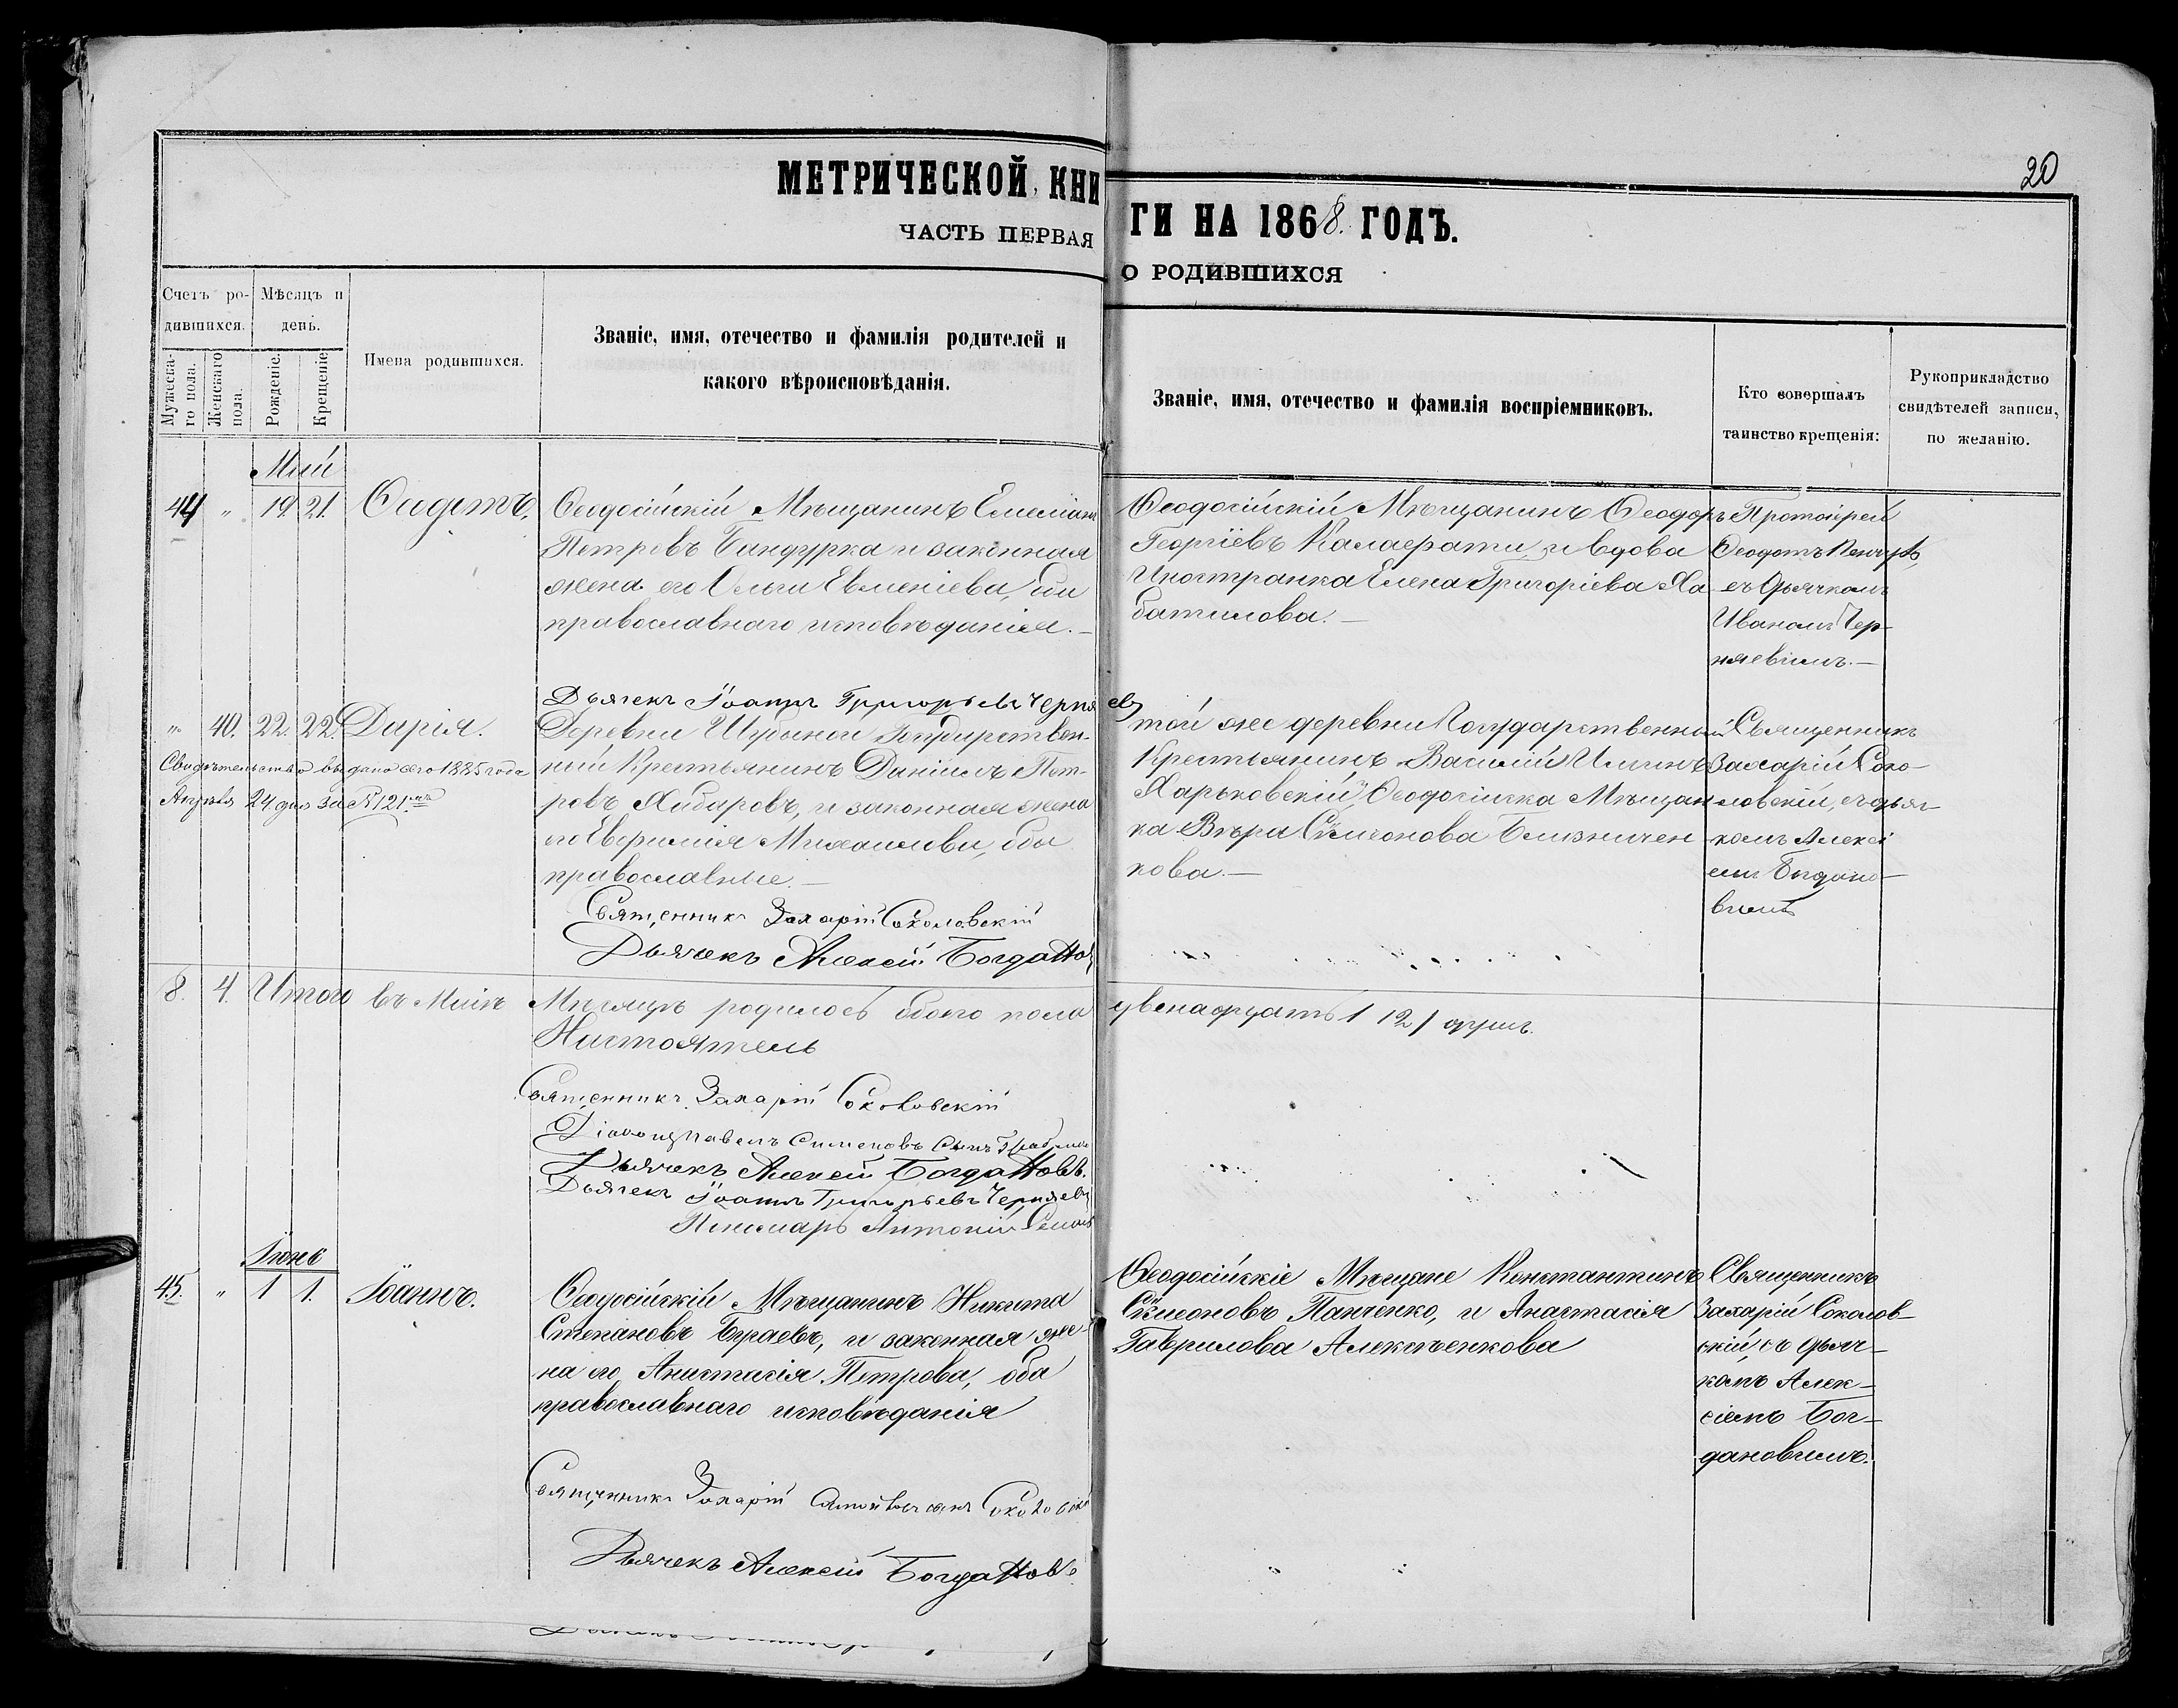 20
МЕТРИЧЕСКОЙ КНИГИ НА 1868. ГОДЪ.
ЧАСТЬ ПЕРВАЯ О РОДИВШИХСЯ
Счетъ ро-
дившихся.
Мужеска-
го пола.
Женскаго
пола.
Мѣсяцъ и
день.
Рожденіе.
Крещеніе.
Имена родившихся.
Званіе, имя, отечество и фамилія родителей и
какого вѣроисповѣданія.
Званіе, имя, отечество и фамилія воспріемниковъ.
Кто совершалъ
таинство крещенія:
Рукоприкладство
свидѣтелей записи,
по желанію.
Май
44 " 19. 21.
Ѳеодосійскій Мѣщанинъ
Петровъ Бандурка и законная
жена его Ольга Евменіева, оба
православнаго исповѣданія.—
Дьячекъ Іоаннъ Григорьевъ Черняевъ
Ѳеодосійскій Мѣщанинъ Ѳеодоръ
Георгіевъ и вдова
Иностранка Елена Григоріева Ха
батилова.—
Протоіерей
Ѳеодотъ
съ Дьячкомъ
Иваномъ Чер-
няевымъ.—
" 40. 22. 22. Дарія.
Свидѣтельство выдано сего 1885 года
Апрѣля 24 дня за № 121мъ
Деревни Шубиной Государствен-
ный Крестьянинъ Даніилъ Пет-
ровъ Хабаровъ, и законная жена
его Евфимія Михаилова, оба
православные.—
Священникъ Захарій Соколовскій
Дьячекъ Алексій Богдановъ
той же деревни Государственный
Крестьянинъ Василій Ильинъ
Харьковскій, Ѳеодосійска Мѣщан
ка Вѣра Сѵмеонова Близничен
кова.—
Священникъ
Захарій Соко-
ловскій, съ дьяч-
комъ Алексі
емъ Богдано-
вымъ
8. 4. Итого въ Маѣ Мѣсяцѣ родилось обоего пола двенадцать / 12 / душъ.
Настоятель
Священникъ Захарій Соколовскій
Діаконъ Павелъ Симеоновъ сынъ
Дьячекъ Алексій Богдановъ.
Дьячекъ Іоаннъ Григорьевъ Черняевъ
Пономарь Антоній
Іюнь
45. " 1 1. Іоаннъ.
Ѳеодосійскій Мѣщанинъ Никита
Степановъ Бураевъ, и законная же-
на его Анастасія Петрова, оба
православнаго исповѣданія
Священникъ Захарій сынъ Соколовскій
Дьячекъ Алексій Богдановъ
Ѳеодосійскіе Мѣщане Константинъ
Сѵмеоновъ Панченко, и Анастасія
Гаврилова Алексѣенкова
Священникъ
Захарій Соколов-
скій, съ дьяч-
комъ Алек-
сіемъ Бог-
дановымъ.